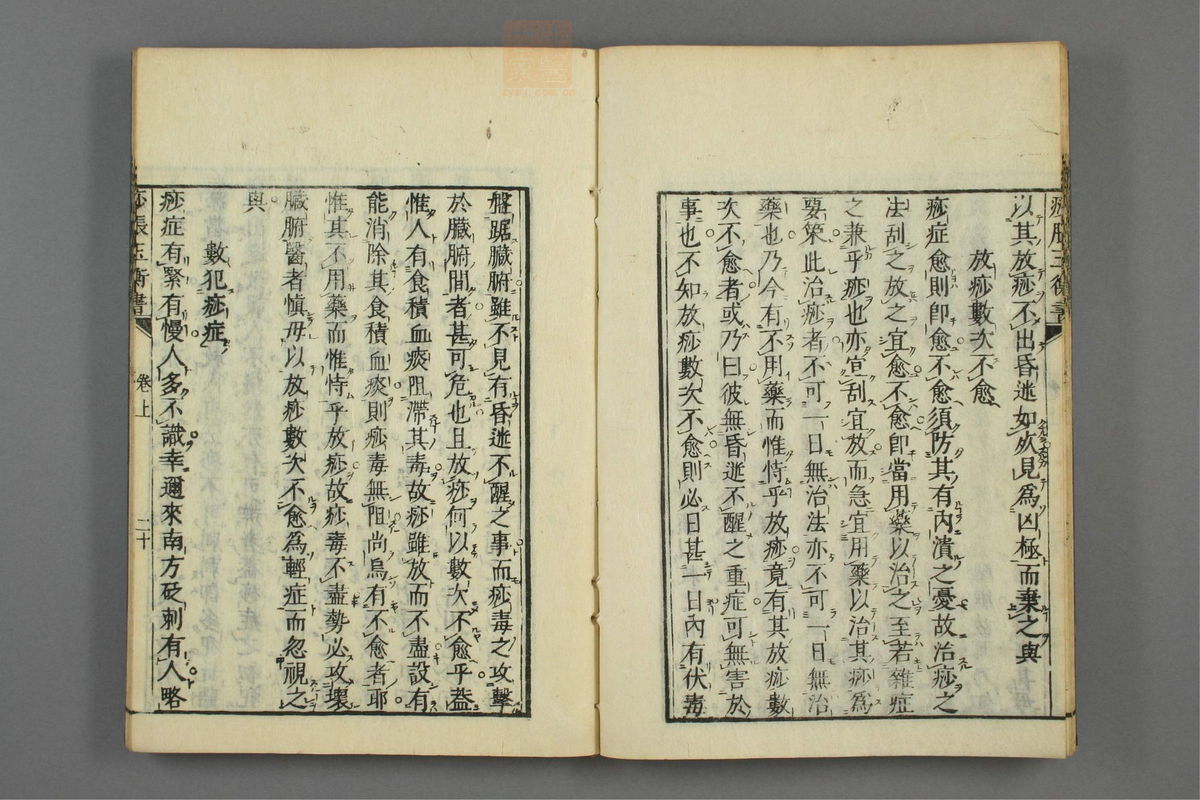 以其放痧不出昏迷如故見爲凶極而棄之與
放痧數次不愈
痧症愈則卽愈不愈須防其有內潰之憂故治痧之
法刮之放之宜愈不愈卽當用藥以治之至若雜症
之兼乎痧也亦宜刮宜放而急宜用藥以治其痧爲
要策此治痧者不可一日無治法亦不可一日無治
藥也乃今有不用藥而惟恃乎放痧竟有其放痧數
次不愈者或乃曰彼無昏迷不醒之重症可無害於
事也不知放痧數次不愈則必日甚一日內有伏毒
盤踞臟腑雖不見有昏迷不醒之事而痧毒之攻擊
於臟腑間者甚可危也且放痧何以數次不愈乎葢
惟人有食積血痰阻滯其毒故痧雖放而不盡設有
能消除其食積血痰則痧毒無阻尚烏有不愈者耶
惟其不用藥而惟恃乎放痧故痧毒不盡勢必攻壞
臟腑醫者愼毋以放痧數次不愈爲輕症而忽視之
與
數犯痧症
痧症有緊有慢人多不識幸邇來南方砭刺有人略
痧脹玉衡書
卷上
二十